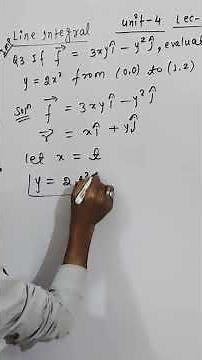 Line Integral unit-4 Lec-
Q3 If f⃗ = 3xyî − y²ĵ, evaluat
y = 2x² from (0,0) to (1,2)
Solⁿ f⃗ = 3xyî − y²ĵ
r⃗ = xî + yĵ
let x = t
y = 2t²